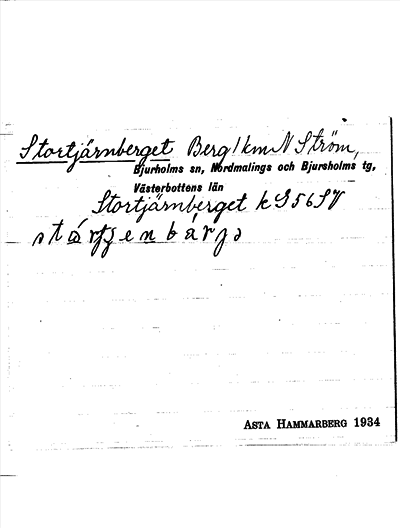 Stortjärnberget Berg 1 km N Ström,
Bjurholms sn, Nordmalings och Bjurholms tg,
Västerbottens län
Stortjärnberget k G56SV
Asta Hammarberg 1934